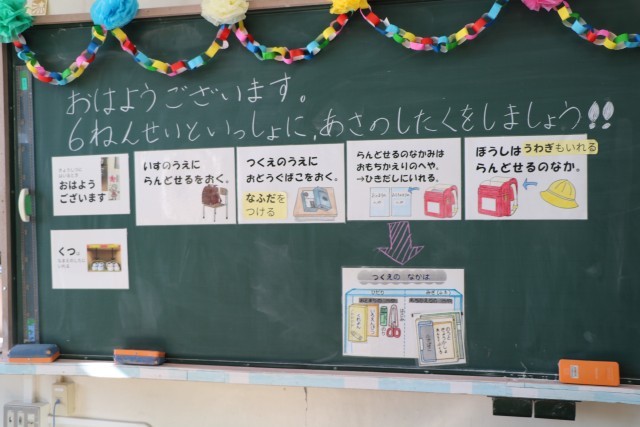 おはようございます。
6ねんせいといっしょに、あさのしたくをしましょう!!
おはよう
ございます
いすのうえに
らんどせるをおく。
つくえのうえに
おどうぐばこをおく。
なふだを
つける
らんどせるのなかみは
おもちかえりのへや。
→ひきだしにいれる。
ぼうしは うわぎもいれる
らんどせるのなか。
くつは
つくえの なかは